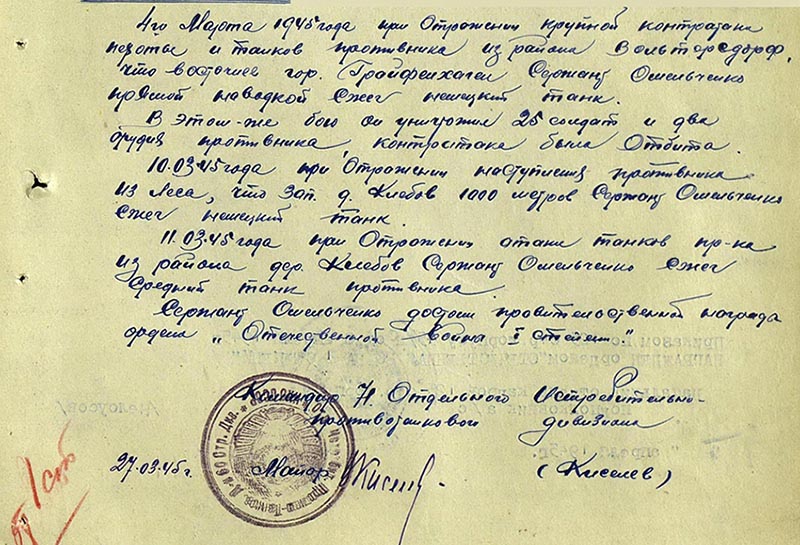 4го Марта 1945 года при Отражении крупной контратаки
пехоты и танков противника из района Вольтерсдорф,
что восточнее гор. Грайфенхаген Сержант Омельченко
прямой наводкой Сжег немецкий танк.
В этом-же бою он уничтожил 25 солдат и два
орудия противника, контратака была Отбита.
10.03.45 года при Отражении наступления противника
из Леса, что Зап. д. Клебов 1000 метров Сержант Омельченко
Сжег немецкий танк.
11.03.45 года при Отражении атаки танков пр-ка
из района дер. Клебов Сержант Омельченко Сжег
Средний танк противника.
Сержант Омельченко достоин правительственной награды
ордена „Отечественной Война I степени"
Командир Отдельного Истребительно-
противотанковой дивизиона
27.03.45г. Майор (Киселев)